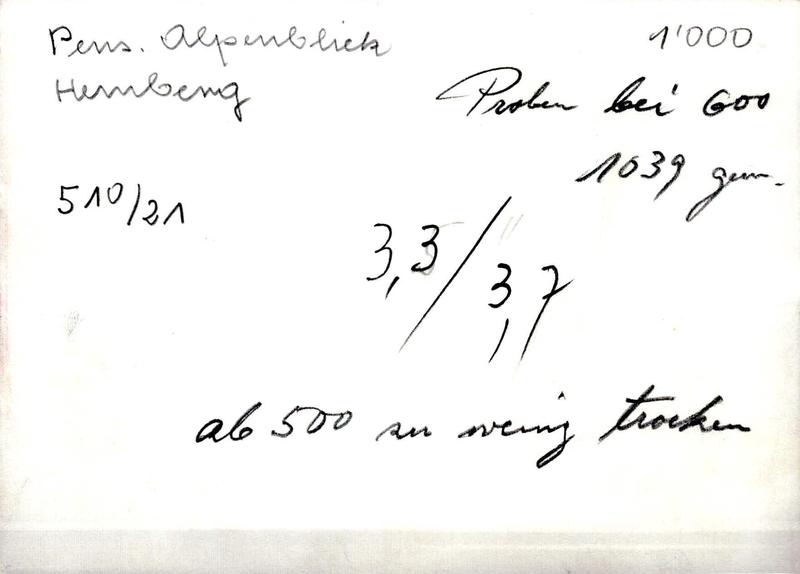 Pens. Alpenblick 1'000
Hemberg
Proben bei 600
1039 gem.
510/21
3,3/3,7
ab 500 zu wenig trocken